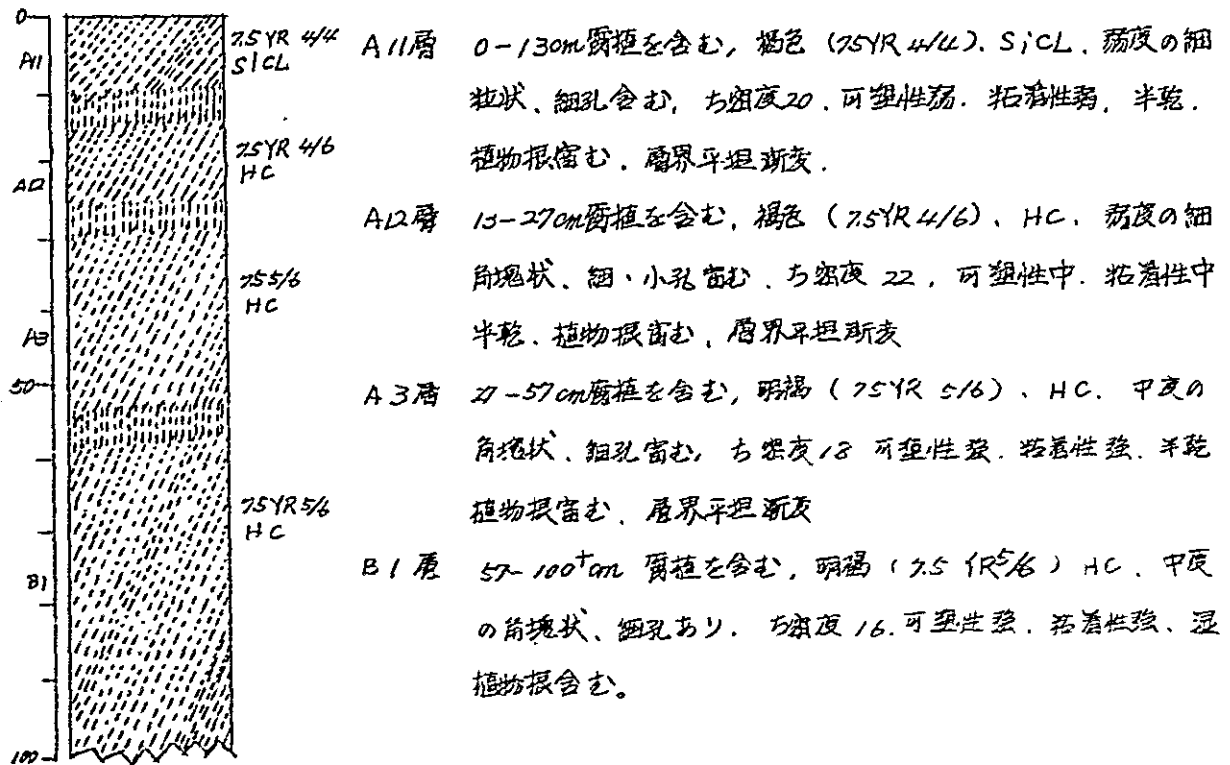 0
A11
A12
A3
50
B1
100
7.5YR 4/4
SiCL
7.5YR 4/6
HC
7.5 5/6
HC
7.5YR 5/6
HC
A11層 0-13cm腐植を含む, 褐色 (7.5YR 4/4). SiCL. 弱度の細
粒状、細孔含む, ち密度20. 可塑性弱. 粘着性弱, 半乾.
植物根富む. 層界平坦漸変.
A12層 13-27cm腐植を含む, 褐色 (7.5YR 4/6)、HC. 弱度の細
角塊状、細・小孔富む、ち密度 22, 可塑性中. 粘着性中
半乾. 植物根富む, 層界平坦漸変
A3層 27-57cm腐植を含む, 明褐 (7.5YR 5/6)、HC. 中度の
角塊状、細孔富む, ち密度18 可塑性強. 粘着性強. 半乾
植物根富む、層界平坦漸変
B1層 57-100⁺cm 腐植を含む, 明褐 (7.5 YR 5/6) HC. 中度
の角塊状、細孔あり. ち密度 16. 可塑性強. 粘着性強、湿
植物根含む。